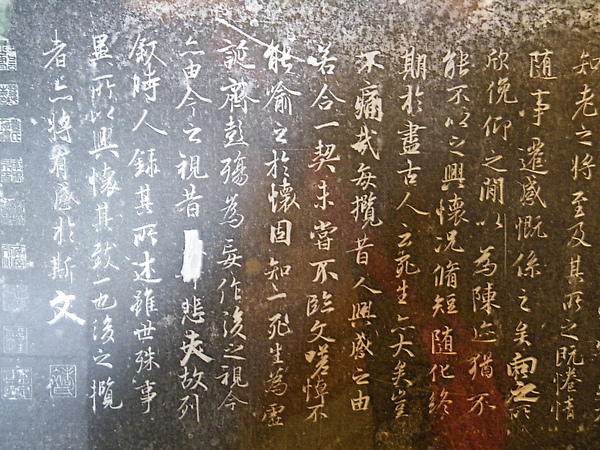 知老之将至及其所之既惓情
随事遷感慨係之矣向之所
欣俛仰之閒以為陳迹猶不
能不以之興懷況脩短随化終
期於盡古人云死生亦大矣豈
不痛哉每攬昔人興感之由
若合一契未嘗不臨文嗟悼不
能喻之於懷固知一死生為虛
誕齊彭殤為妄作後之視今
亦由今之視昔悲夫故列
叙時人録其所述雖世殊事
異所以興懷其致一也後之攬
者亦将有感於斯文